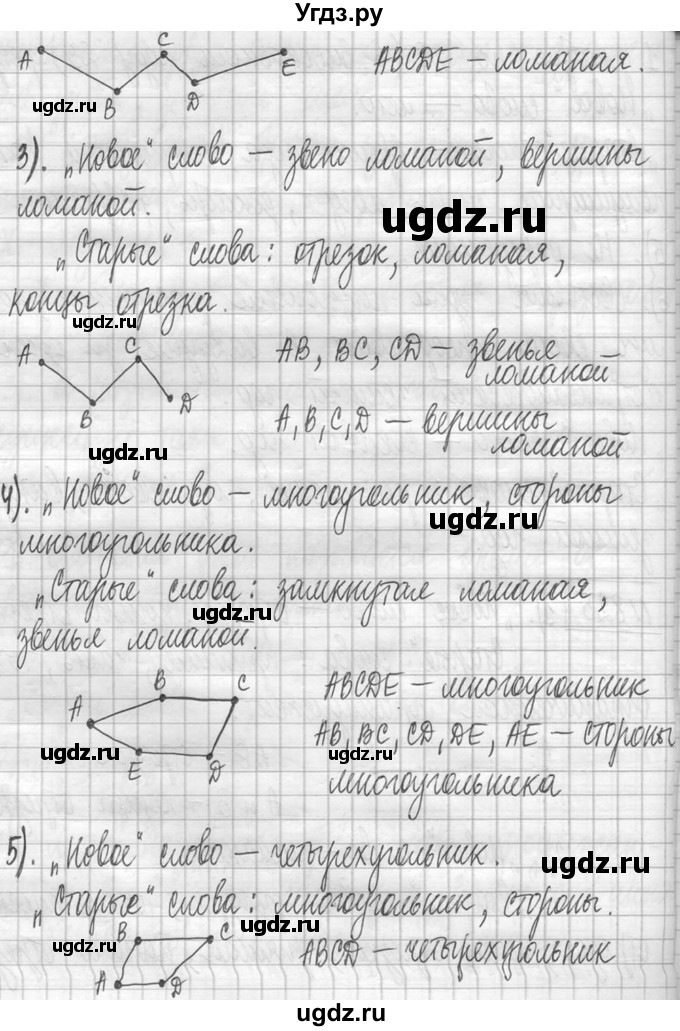 Угдз.ру
A B C D E
ABCDE – ломаная.
ugdz.ru
ugdz.ru
3). „Новое“ слово – звено ломаной, вершины
ломаной.
ugdz.ru
„Старые“ слова: отрезок, ломаная,
концы отрезка.
ugdz.ru
A B C D
AB, BC, CD – звенья
ломаной
A, B, C, D – вершины
ломаной
ugdz.ru
4). „Новое“ слово – многоугольник, стороны
ugdz.ru
многоугольника.
„Старые“ слова: замкнутая ломаная,
ugdz.ru
звенья ломаной.
A B C D E
ABCDE – многоугольник
AB, BC, CD, DE, AE – стороны
ugdz.ru
ugdz.ru
многоугольника
5). „Новое“ слово – четырехугольник.
ugdz.ru
„Старые“ слова: многоугольник, стороны.
A B C D
ABCD – четырехугольник
ugdz.ru
ugdz.ru
ugdz.ru